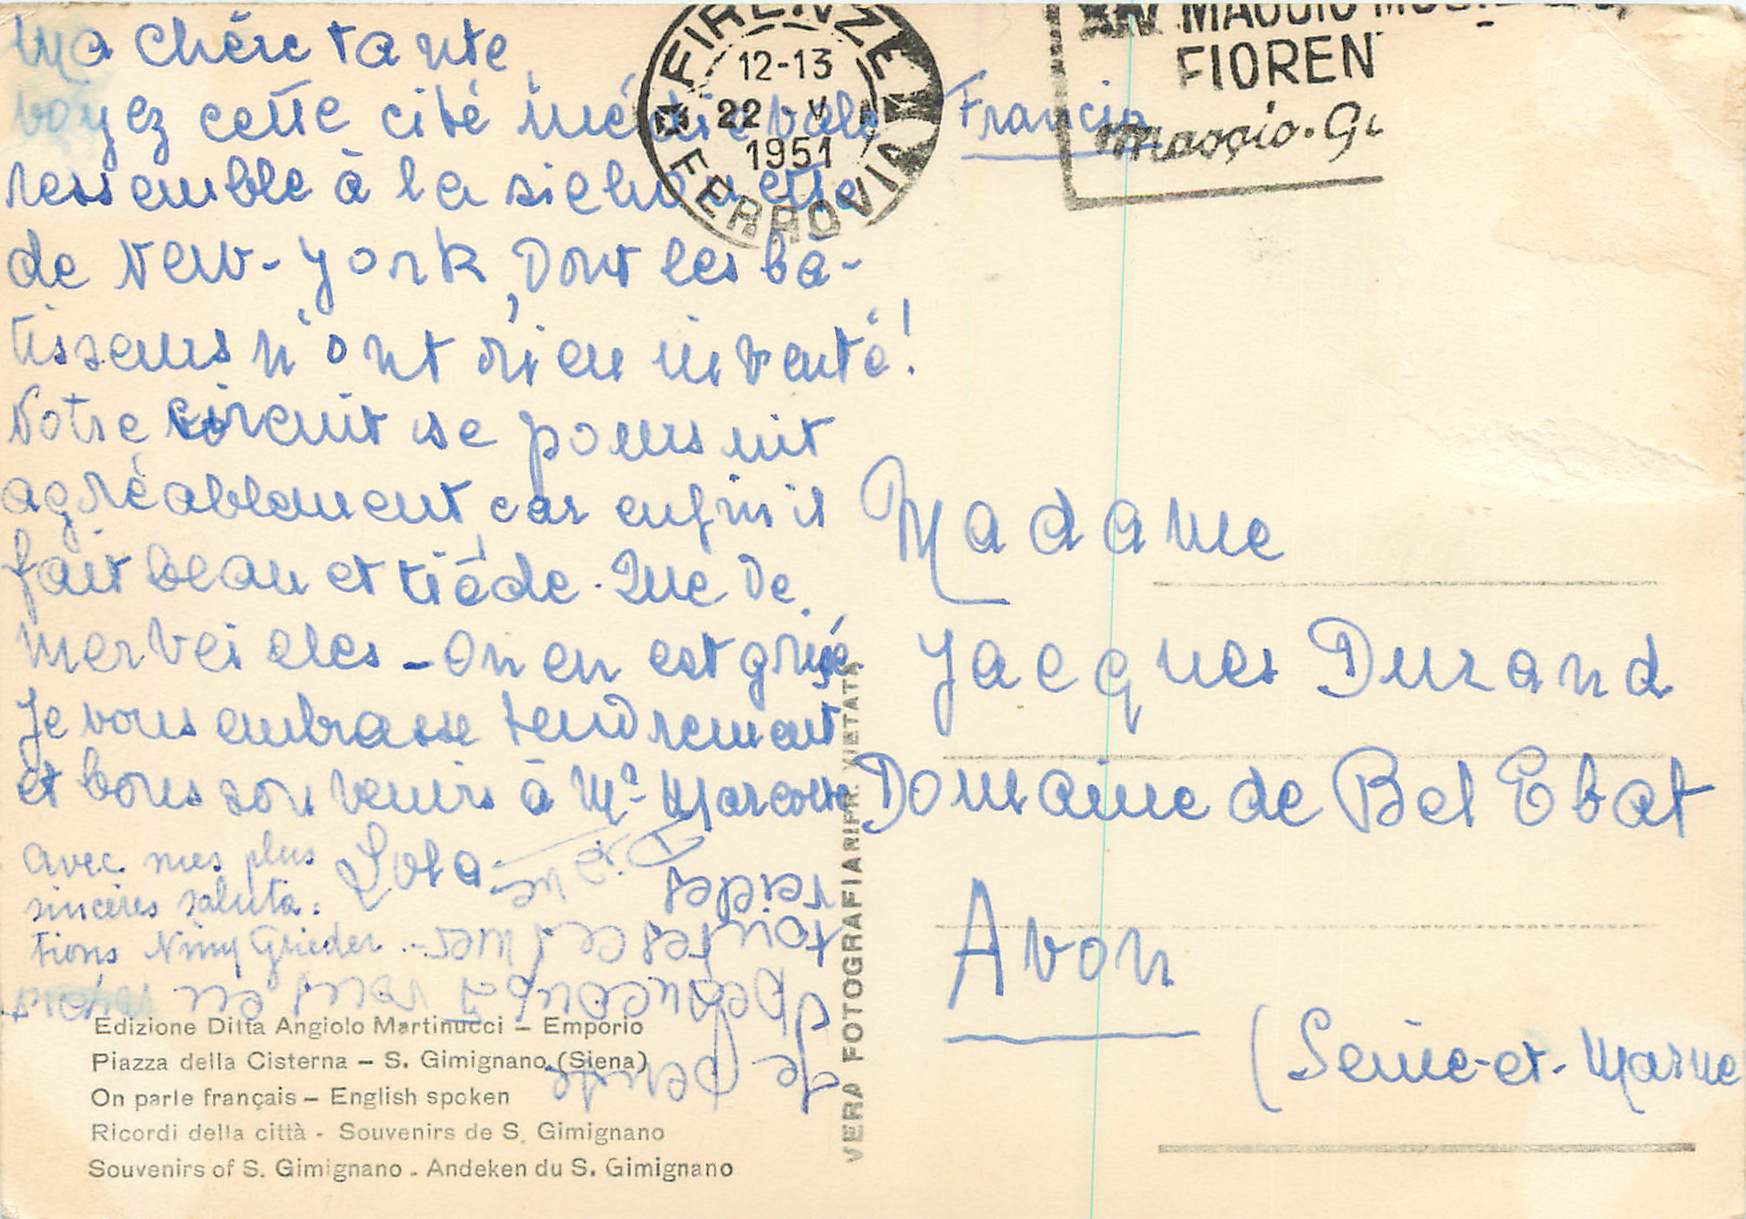 Ma chère tante
voyez cette cité médiévale
ressemble à la silhouette
de New-York, Dont les bâ-
tisseurs n'ont rien inventé!
Notre circuit se poursuit
agréablement, car enfin il
fait beau et tiède. Que De
merveilles - On en est grisé
Je vous embrasse tendrement
et bons souvenirs à Mr Marcotte
Lola
avec mes plus
sincères saluta:
tions Nimy Grieder
Je pense
beaucoup à vous en
toutes ces mer-
FIRENZE
12-13
22 V
1951
FERROVIA
XIV MAGGIO
FIOREN
Maggio-Gi
Francia
Madame
Jacques Durand
Domaine de Bel Ebat
Avon
(Seine-et-Marne
VERA FOTOGRAFIA RIPR. VIETATA
Edizione Ditta Angiolo Martinucci – Emporio
Piazza della Cisterna – S. Gimignano (Siena)
On parle français – English spoken
Ricordi della città - Souvenirs de S. Gimignano
Souvenirs of S. Gimignano - Andeken du S. Gimignano